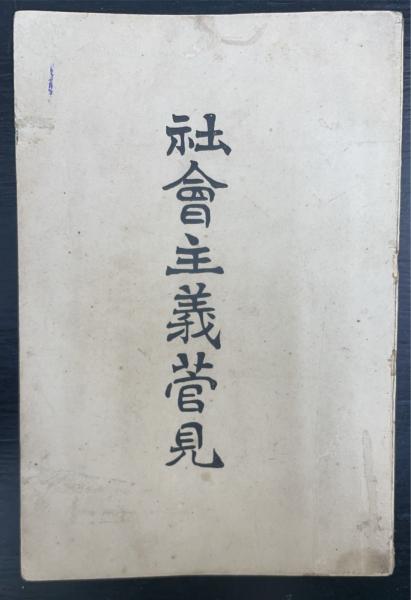 社會主義菅見